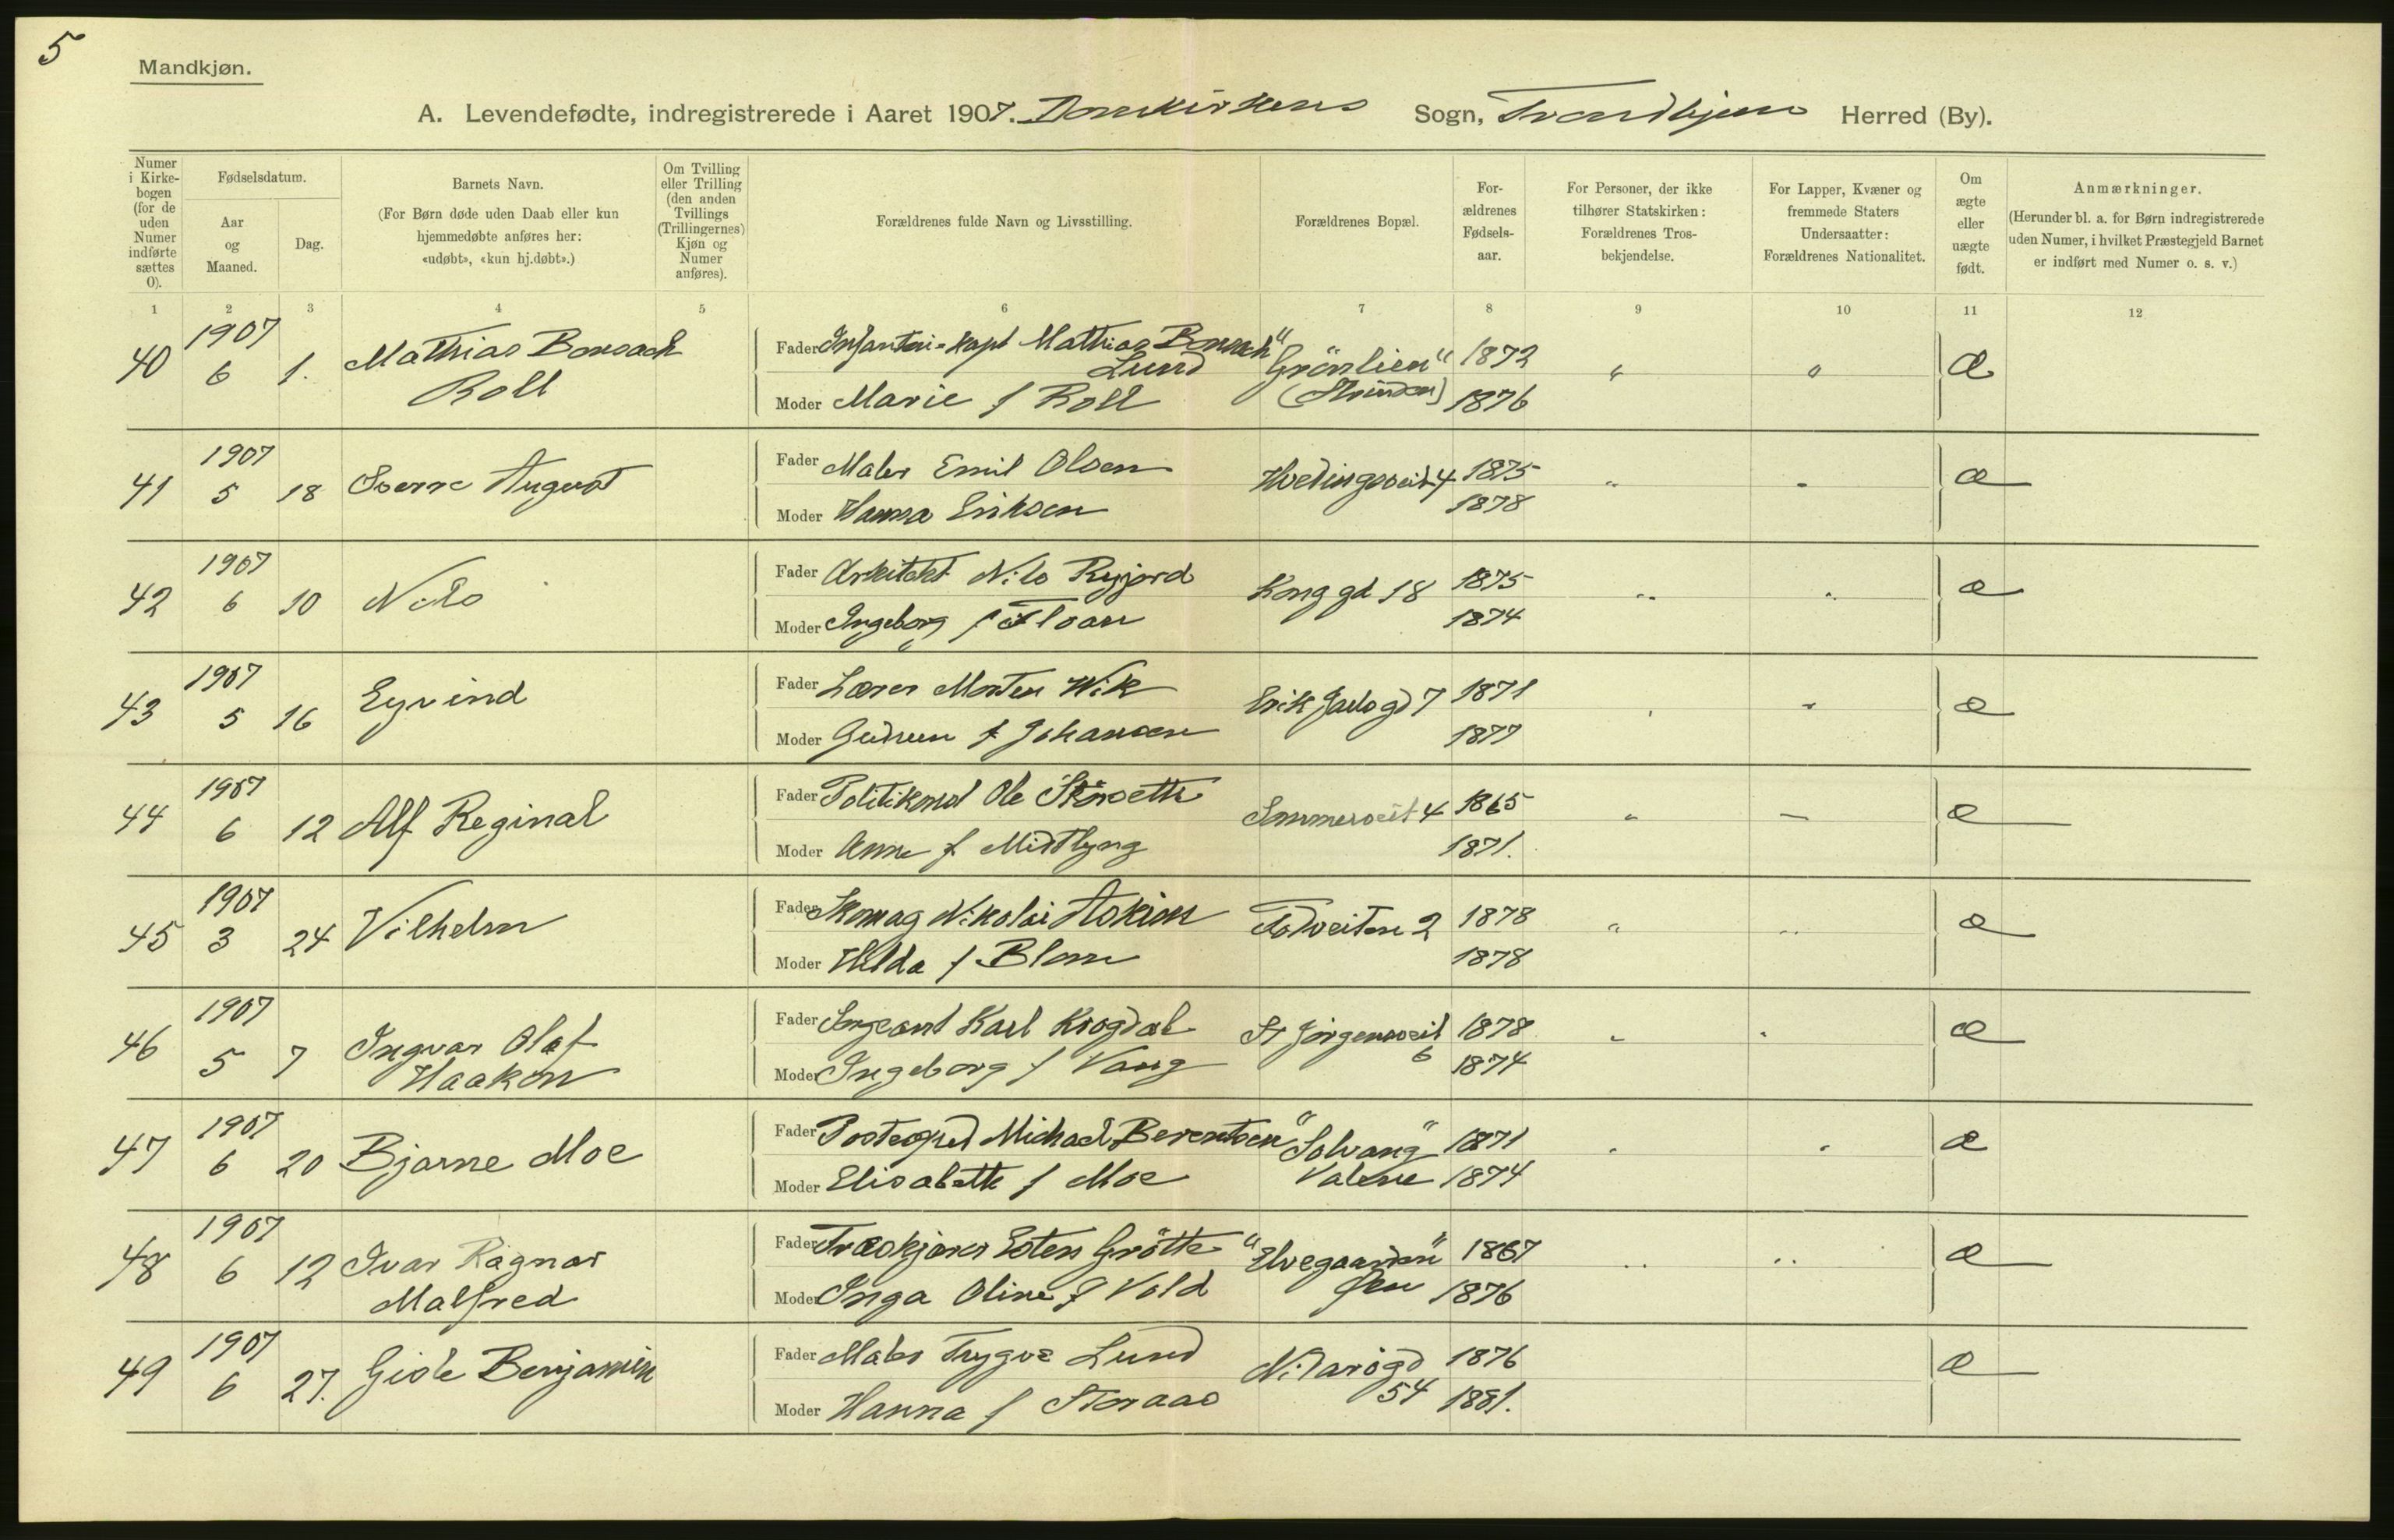 5
Mandkjøn.
A. Levendefødte, indregistrerede i Aaret 1907. Domkirkens Sogn, Trondhjem Herred (By).
Numer i Kirke-bogen (for de uden Numer indførte sættes 0).
Fødselsdatum.
Aar og Maaned.
Dag.
Barnets Navn.
(For Børn døde uden Daab eller kun hjemmedøbte anføres her: «udøbt», «kun hj.døbt».)
Om Tvilling eller Trilling (den anden Tvillings (Trillingernes) Kjøn og Numer anføres).
Forældrenes fulde Navn og Livsstilling.
Forældrenes Bopæl.
For-ældrenes Fødsels-aar.
For Personer, der ikke tilhører Statskirken: Forældrenes Tros-bekjendelse.
For Lapper, Kvæner og fremmede Staters Undersaatter: Forældrenes Nationalitet.
Om ægte eller uægte født.
Anmærkninger.
(Herunder bl. a. for Børn indregistrerede uden Numer, i hvilket Præstegjeld Barnet er indført med Numer o. s. v.)
1 2 3 4 5 6 7 8 9 10 11 12
40 1907 6 1. Mathias Bonsach Roll
Fader Infanteri-kapt Mathias Bonsach Lund "Grönlien" (Strinden) 1872 " " æ
Moder Marie f Roll 1876
41 1907 5 18 Sverre August
Fader Maler Emil Olsen Hvedingsveit 4 1875 " " æ
Moder Hanna Eriksen 1878
42 1907 6 10 Nils
Fader Arkitekt Nils Ryjord Kong gd 18 1875 " " æ
Moder Ingeborg f Floan 1874
43 1907 5 16 Eyvind
Fader Lærer Morten Wik Erik Jarls gd 7 1871 " " æ
Moder Gudrun f Johansen 1877
44 1907 6 12 Alf Reginal
Fader Politikonst Ole Skörseth Sommerveit 4 1865 " " æ
Moder Anne f Midtlyng 1871.
45 1907 3 24 Vilhelm
Fader Skomag Nikolai Askim Todveiten 2 1878 " " æ
Moder Hilda f Blom 1878
46 1907 5 7 Ingvar Olaf Haakon
Fader Sergeant Karl Krogdal St Jörgensveit 6 1878 " " æ
Moder Ingeborg f Vang 1874
47 1907 6 20 Bjarne Moe
Fader Postexped Michael Berentsen "Solvang" 1871 " " æ
Moder Elisabeth f Moe 1874
48 1907 6 12 Ivar Ragnar Malfred
Fader Træskjærer Esten Grötte "Elvegaarden" Øen 1867 " " æ
Moder Inga Oline f Vold 1876
49 1907 6 27. Gisle Benjamin
Fader Maler Trygve Lund Nidarøgd 54 1876 æ
Moder Hanna f Storaas 1881.